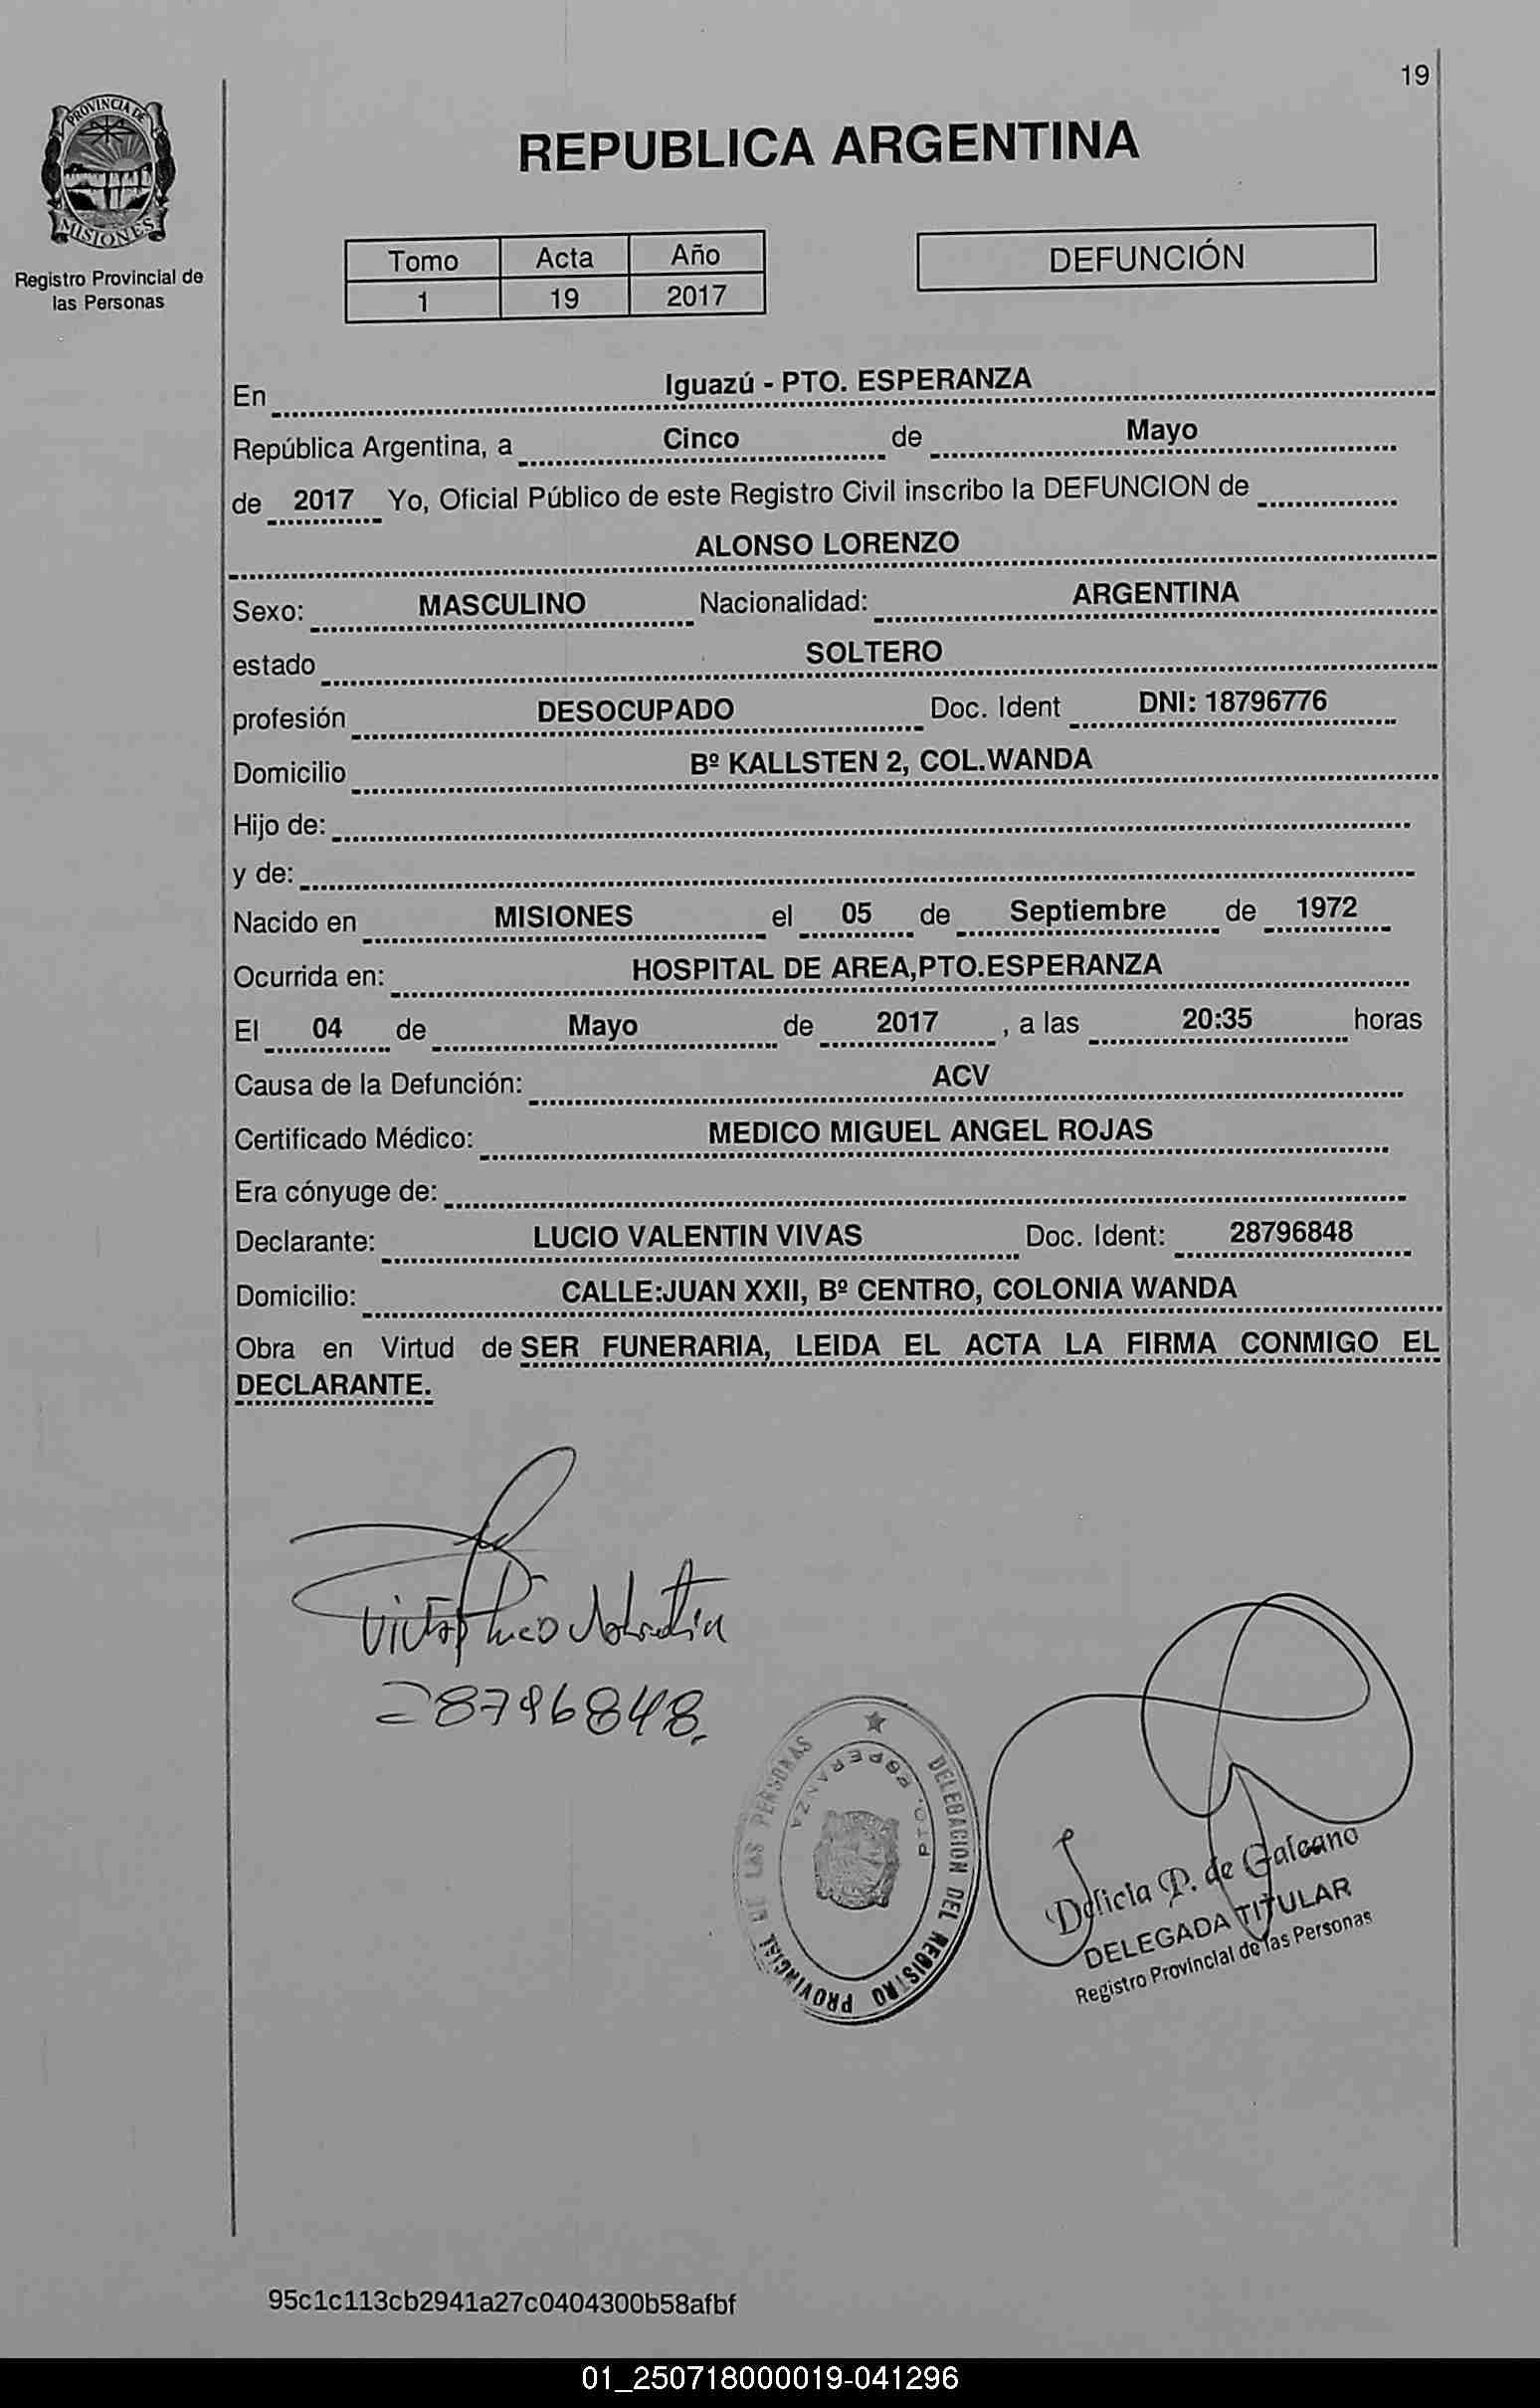 19
PROVINCIA DE
MISIONES
Registro Provincial de
las Personas
REPUBLICA ARGENTINA
Tomo Acta Año
1 19 2017
DEFUNCIÓN
En Iguazú - PTO. ESPERANZA
República Argentina, a Cinco de Mayo
de 2017 Yo, Oficial Público de este Registro Civil inscribo la DEFUNCION de
ALONSO LORENZO
Sexo: MASCULINO Nacionalidad: ARGENTINA
estado SOLTERO
profesión DESOCUPADO Doc. Ident DNI: 18796776
Domicilio Bº KALLSTEN 2, COL.WANDA
Hijo de:
y de:
Nacido en MISIONES el 05 de Septiembre de 1972
Ocurrida en: HOSPITAL DE AREA,PTO.ESPERANZA
El 04 de Mayo de 2017 , a las 20:35 horas
Causa de la Defunción: ACV
Certificado Médico: MEDICO MIGUEL ANGEL ROJAS
Era cónyuge de:
Declarante: LUCIO VALENTIN VIVAS Doc. Ident: 28796848
Domicilio: CALLE:JUAN XXII, Bº CENTRO, COLONIA WANDA
Obra en Virtud de SER FUNERARIA, LEIDA EL ACTA LA FIRMA CONMIGO EL
DECLARANTE.
28796848.
DELEGACION DEL REGISTRO PROVINCIAL DE LAS PERSONAS
PTO. ESPERANZA
Delicia P. de Galeano
DELEGADA TITULAR
Registro Provincial de las Personas
95c1c113cb2941a27c0404300b58afbf
01_250718000019-041296